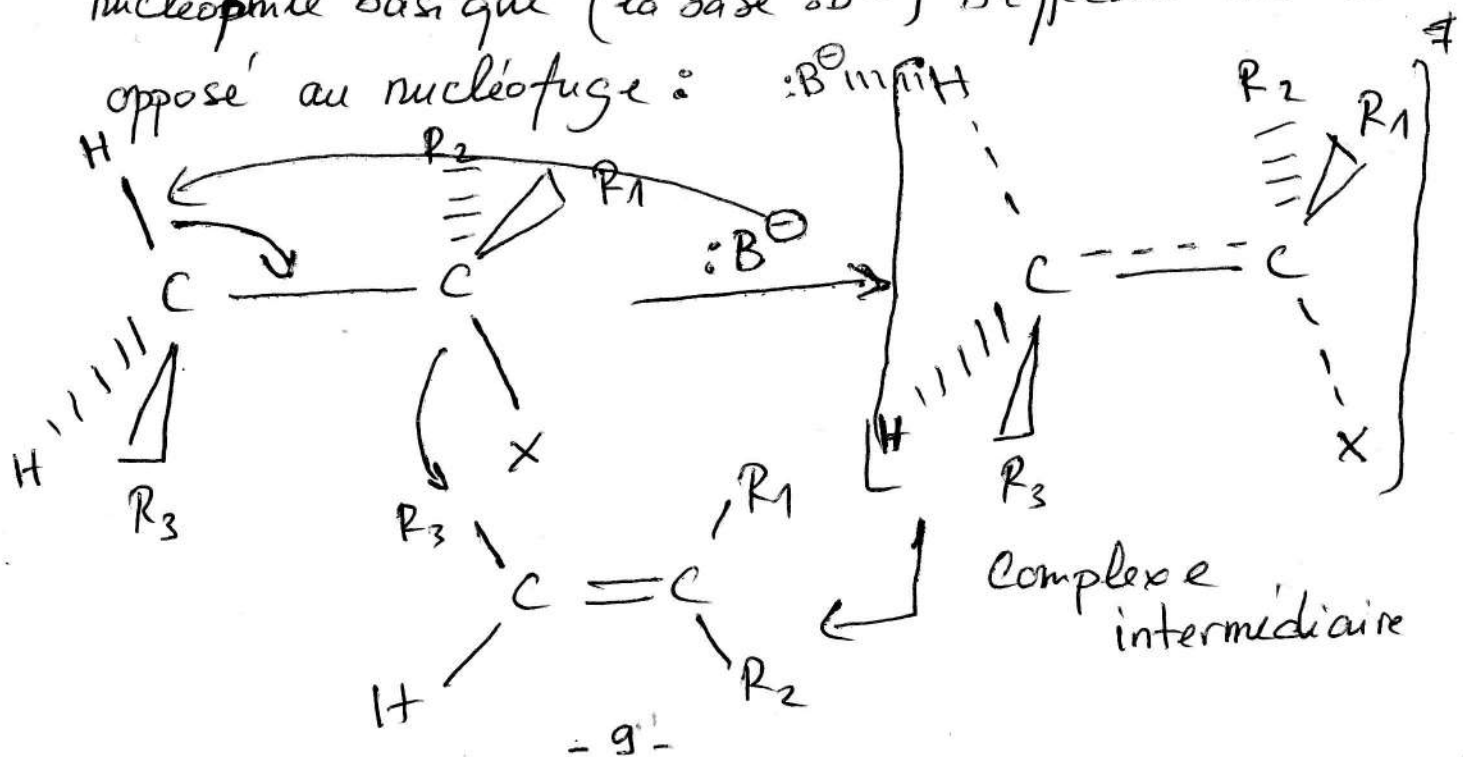 nucléophile basique (la base :B⊖)
opposé au nucléofuge : :B⊖ H
R2 R1 ≠
H R2 R1
:B⊖
C C C C
H R3 X H R3 X
R3 R1
C = C
H R2
Complexe
intermédiaire
- 9 -